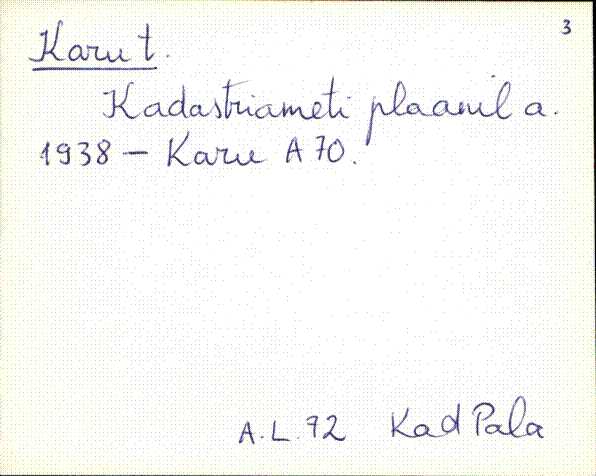 3
Karu t.
Kadastriameti plaanil a.
1938 – Karu A 70.
A.L. 72 Kad Pala